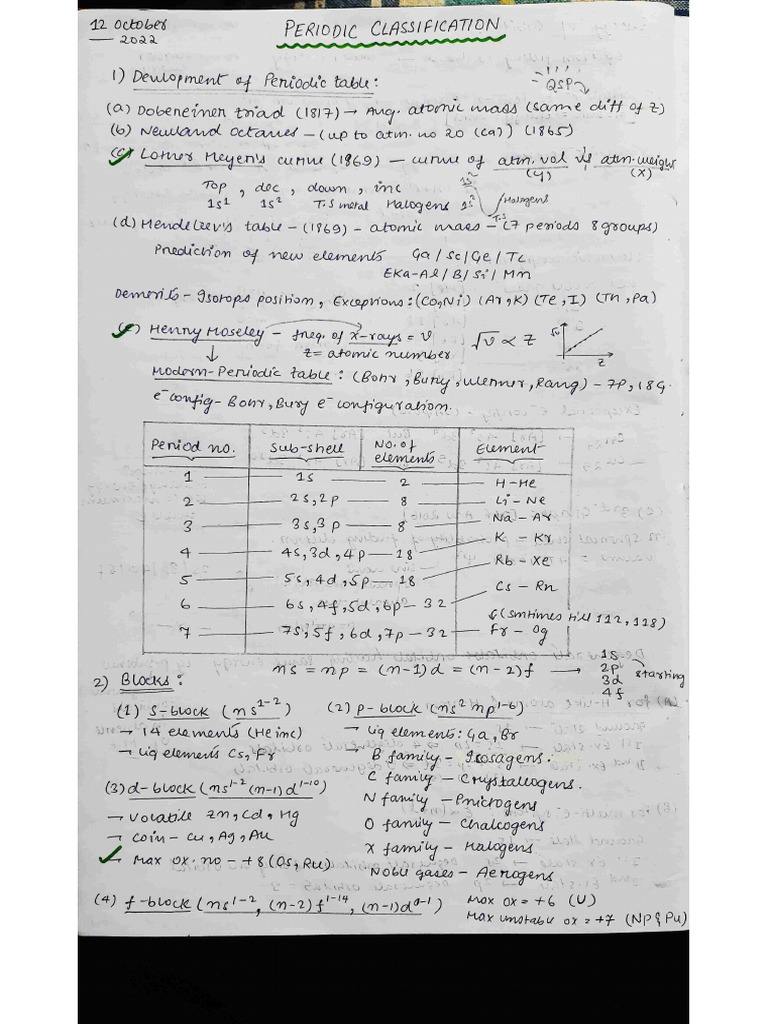 12 October
2022
PERIODIC CLASSIFICATION
1) Devlopment of Periodic table:
QSP
(a) Dobereiner triad (1817) → Avg. atomic mass (same diff of Z)
(b) Newland octaves - (up to atm. no 20 (Ca)) (1865)
(c) Lother Meyer's curve (1869) - curve of atm. vol vs atm. weight
(y) (x)
Top, dec, down, inc
1s¹ 1s² T.S metal Halogens
1s¹ 1s² Halogens
T.S
(d) Mendeleev's table - (1869) - atomic mass - (7 periods 8 groups)
Prediction of new elements Ga/Sc/Ge/Tc
EKa-Al/B/Si/Mn
Demerits - Isotops position, Exceptions: (Co,Ni) (Ar,K) (Te,I) (Th,Pa)
(e) Henry Moseley - freq. of x-rays = ν √ν ∝ Z √ν
Z = atomic number Z
Modern-Periodic table: (Bohr, Bury, Werner, Rang) - 7P, 18G.
e⁻config- Bohr, Bury e⁻ configuration.
Period no. Sub-shell No. of elements Element
1 1s 2 H-He
2 2s,2p 8 Li-Ne
3 3s,3p 8 Na-Ar
4 4s,3d,4p 18 K-Kr
5 5s,4d,5p 18 Rb-Xe
6 6s,4f,5d,6p 32 Cs-Rn
(Smtimes till 112, 118)
7 7s,5f,6d,7p 32 Fr-Og
ns = np = (n-1)d = (n-2)f → 1s
2p
3d
4f
starting
2) Blocks:
(1) S-block (ns¹⁻²)
→ 14 elements (He inc)
→ Liq elements Cs, Fr
(2) P-block (ns² np¹⁻⁶)
→ Liq elements: Ga, Br
→ B family - Icosagens.
C family - Crystallogens.
N family - Pnicogens
O family - Chalcogens
X family - Halogens
Noble gases - Aerogens
(3) d-block (ns¹⁻² (n-1)d¹⁻¹⁰)
→ Volatile Zn, Cd, Hg
→ Coin - Cu, Ag, Au
→ Max ox. no - +8 (Os, Ru)
(4) f-block (ns¹⁻², (n-2)f¹⁻¹⁴, (n-1)d⁰⁻¹)
Max ox = +6 (U)
Max unstable ox = +7 (Np & Pu)